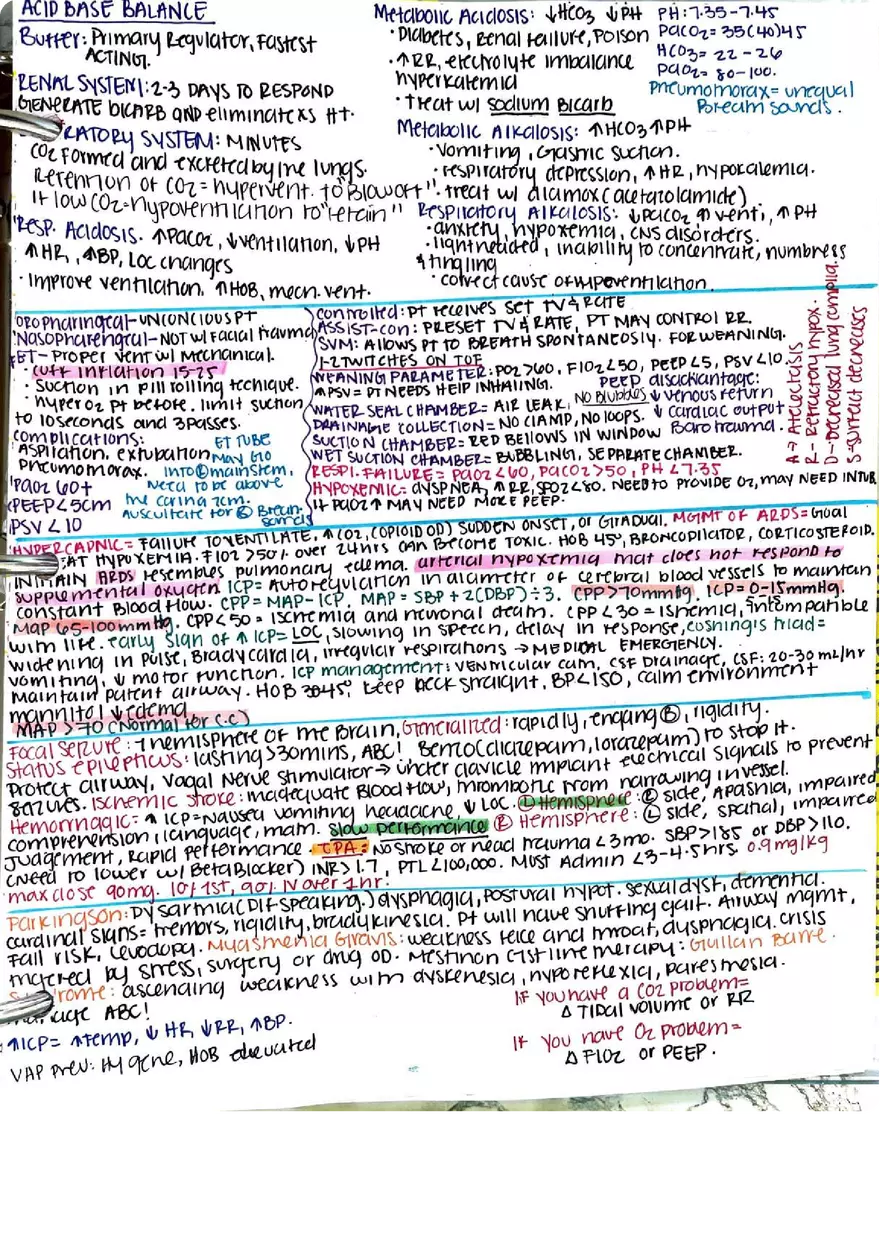 ACID BASE BALANCE
Buffer: Primary Regulator, Fastest
ACTING.
RENAL SYSTEM: 2-3 DAYS TO RESPOND
GENERATE BICARB AND eliminate xs H+.
RATORY SYSTEM: MINUTES
CO2 Formed and excreted by the lungs.
Retention of CO2 = hypervent. to "Blow off".
If low CO2 = hypoventilation to "retain"
Resp. Acidosis. ↑PaCO2, ↓ventilation, ↓PH
↑HR, ↑BP, LOC changes
· Improve ventilation, ↑HOB, mech. vent.
Metabolic Acidosis: ↓HCO3 ↓PH
· Diabetes, Renal Failure, Poison
· ↑RR, electrolyte imbalance
hyperkalemia
· treat w/ sodium Bicarb
PH: 7.35-7.45
PaCO2 = 35(40)45
HCO3 = 22-26
PaO2 = 80-100.
Pneumothorax = unequal
Bream sounds.
Metabolic Alkalosis: ↑HCO3 ↑PH
· Vomiting, Gastric Suction.
· respiratory depression, ↑HR, hypokalemia.
· treat w/ diamox (acetazolamide)
Respiratory Alkalosis: ↓PaCO2 ↑venti, ↑PH
· anxiety, hypoxemia, CNS disorders.
· lightheaded, inability to concentrate, numbness
& tingling
· correct cause of hyperventilation.
Oropharingeal - UNCONCIOUS PT
Nasopharengeal - NOT w/ Facial trauma
ET - Proper vent w/ Mechanical.
· Cuff inflation 15-25
· Suction in pill rolling technique.
· hyper O2 pt before. limit suction
to 10seconds and 3passes.
Complications:
Aspiration, extubation
Pneumothorax.
PaO2 60+
PEEP<5cm
PSV<10
ET TUBE
MAY GO
into Ⓡ mainstem,
need to be above
the carina 2cm.
Auscultate for Ⓑ Breath
sounds
Controlled: PT receives set TV & RATE
ASSIST-CON: PRESET TV & RATE, PT MAY CONTROL RR.
SVM: ALLOWS PT TO BREATH SPONTANEOSLY. FOR WEANING.
1-2 TWITCHES ON TOF
WEANING PARAMETER: PO2>60, FIO2<50, PEEP<5, PSV<10.
↑PSV = PT NEEDS HELP INHALING.
WATER SEAL CHAMBER = AIR LEAK, NO Blubbles
DRAINAGE COLLECTION = NO CLAMP, NO LOOPS.
SUCTION CHAMBER = RED BELLOWS IN WINDOW
WET SUCTION CHAMBER = BUBBLING, SEPARATE CHAMBER.
RESPI. FAILURE = PaO2<60, PaCO2>50, PH<7.35
HYPOXEMIC = dyspnea, ↑RR, SPO2<80. NEED TO PROVIDE O2, MAY NEED INTUB
If PaO2↑ MAY NEED MORE PEEP.
PEEP disadvantage:
↓ venous return
↓ cardiac output
Barotrauma.
A → Atelectasis
R - Refractory hypox.
D - Decreased lung complia.
S = surfact decreases
HYPERCAPNIC = Failure TO VENTILATE, ↑CO2, (OPIOID OD) SUDDEN ONSET, or GRADUAL. MGMT OF ARDS = Goal
EAT HYPOXEMIA. FIO2 >50% over 24hrs can become toxic. HOB 45°, BRONCODILATOR, CORTICOSTEROID.
ARDS resembles pulmonary edema. arterial hypoxemia that does not respond to
supplemental oxygen. ICP = Autoregulation in diameter of cerebral blood vessels to maintain
constant Blood Flow. CPP = MAP - ICP. MAP = SBP + 2(DBP) ÷ 3. CPP > 70mmHg. ICP = 0-15mmHg.
Map 65-100mmHg. CPP<50 = Ischemia and neuronal death. CPP<30 = Ishemia, intompatible
with life. early sign of ↑ICP = LOC, Slowing in speech, delay in response, cushing's triad =
widening in Pulse, Bradycardia, irregular respirations → MEDICAL EMERGENCY.
vomiting, ↓ motor function. ICP management: ventricular cath, CSF Drainage, CSF: 20-30 mL/hr
Maintain Patent airway. HOB 30-45°, keep neck straight, BP<150, calm environment
mannitol ↓edema
MAP >70 (Normal for C.C)
Focal Seizure: 1 hemisphere of the Brain, Generalized: rapidly, engaging Ⓑ, rigidity.
Status epilepticus: lasting >30mins, ABC! Benzo (diazepam, lorazepam) to stop it.
Protect airway, Vagal Nerve Stimulator → under clavicle implant electrical signals to prevent
seizures. Ischemic stroke: inadequate Blood flow, thrombotic from narrowing in vessel.
Hemorrhagic = ↑ ICP = Nausea vomiting headache ↓ LOC. Ⓛ Hemisphere: Ⓡ side, Aphasia, impaired
comprehension, language, math. slow performance Ⓡ Hemisphere: Ⓛ side, spatial, impaired
Judgement, Rapid Performance. TPA: No stroke or head trauma <3mo. SBP>185 or DBP>110.
(need to lower w/ Beta Blocker) INR>1.7, PTL<100,000. Must Admin <3-4.5hrs. 0.9mg/kg
max dose 90mg. 10% 1st, 90% IV over 1hr.
Parkingson: Dysartria (Dif-Speaking.) dysphagia, postural hypot. sexual dyst, dementia.
Cardinal signs = tremors, rigidity, bradykinesia. Pt will have shuffling gait. Airway mgmt,
Fall risk, Levodopa. Myasthenia Gravis: weakness face and throat, dysphagia. crisis
by stress, surgery or drug OD. Mestinon = 1st line therapy: Guillan Barre.
ascending weakness with dyskenesia, hyporeflexia, paresthesia.
ABC!
↑ICP = ↑temp, ↓HR, ↓RR, ↑BP.
VAP prev: Hygene, HOB elevated
If you have a CO2 problem =
Δ TIDAL VOLUME or RR
If you have O2 problem =
Δ FIO2 or PEEP.